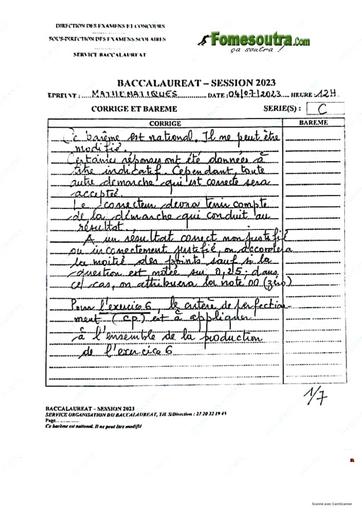 DIRECTION DES EXAMENS ET CONCOURS
SOUS-DIRECTION DES EXAMENS SCOLAIRES
SERVICE BACCALAUREAT
Fomesoutra.com
ça soutra !
BACCALAUREAT – SESSION 2023
EPREUVE : MATHEMATIQUES DATE : 04/07/2023 HEURE : 12H
CORRIGE ET BAREME SERIE(S) : C
CORRIGE BAREME
Ce barême est national. Il ne peut être
modifié.
Certaines réponses ont été données à
titre indicatif. Cependant, toute
autre démarche qui est correcte sera
acceptée.
Le correcteur devra tenir compte
de la démarche qui conduit au
résultat.
A un résultat correct non justifié
ou incorrectement justifié, on accordera
la moitié des points sauf si la
question est notée sur 0,25 ; dans
ce cas, on attribuera la note 00 (zéro)
Pour l'exercice 6, le critère de perfection-
nement (CP) est à appliquer
à l'ensemble de la production
de l'exercice 6
1/7
BACCALAUREAT – SESSION 2023
SERVICE ORGANISATION DU BACCALAUREAT, Tél. S/Direction : 27 20 32 19 45
Page
Ce barème est national. Il ne peut être modifié
Scanné avec CamScanner